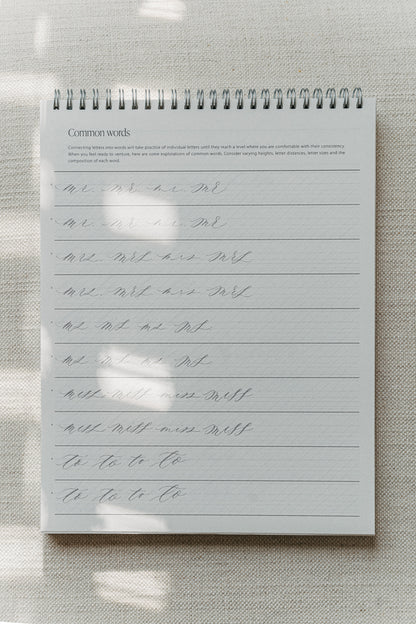 Common words
Connecting letters into words will take practise of individual letters until they reach a level where you are comfortable with their consistency.
When you feel ready to venture, here are some explorations of common words. Consider varying heights, letter distances, letter sizes and the
composition of each word.
mr mr mr mr
mr mr mr mr
mrs mrs mrs mrs
mrs mrs mrs mrs
ms ms ms ms
ms ms ms ms
miss miss miss miss
miss miss miss miss
to to to to
to to to to